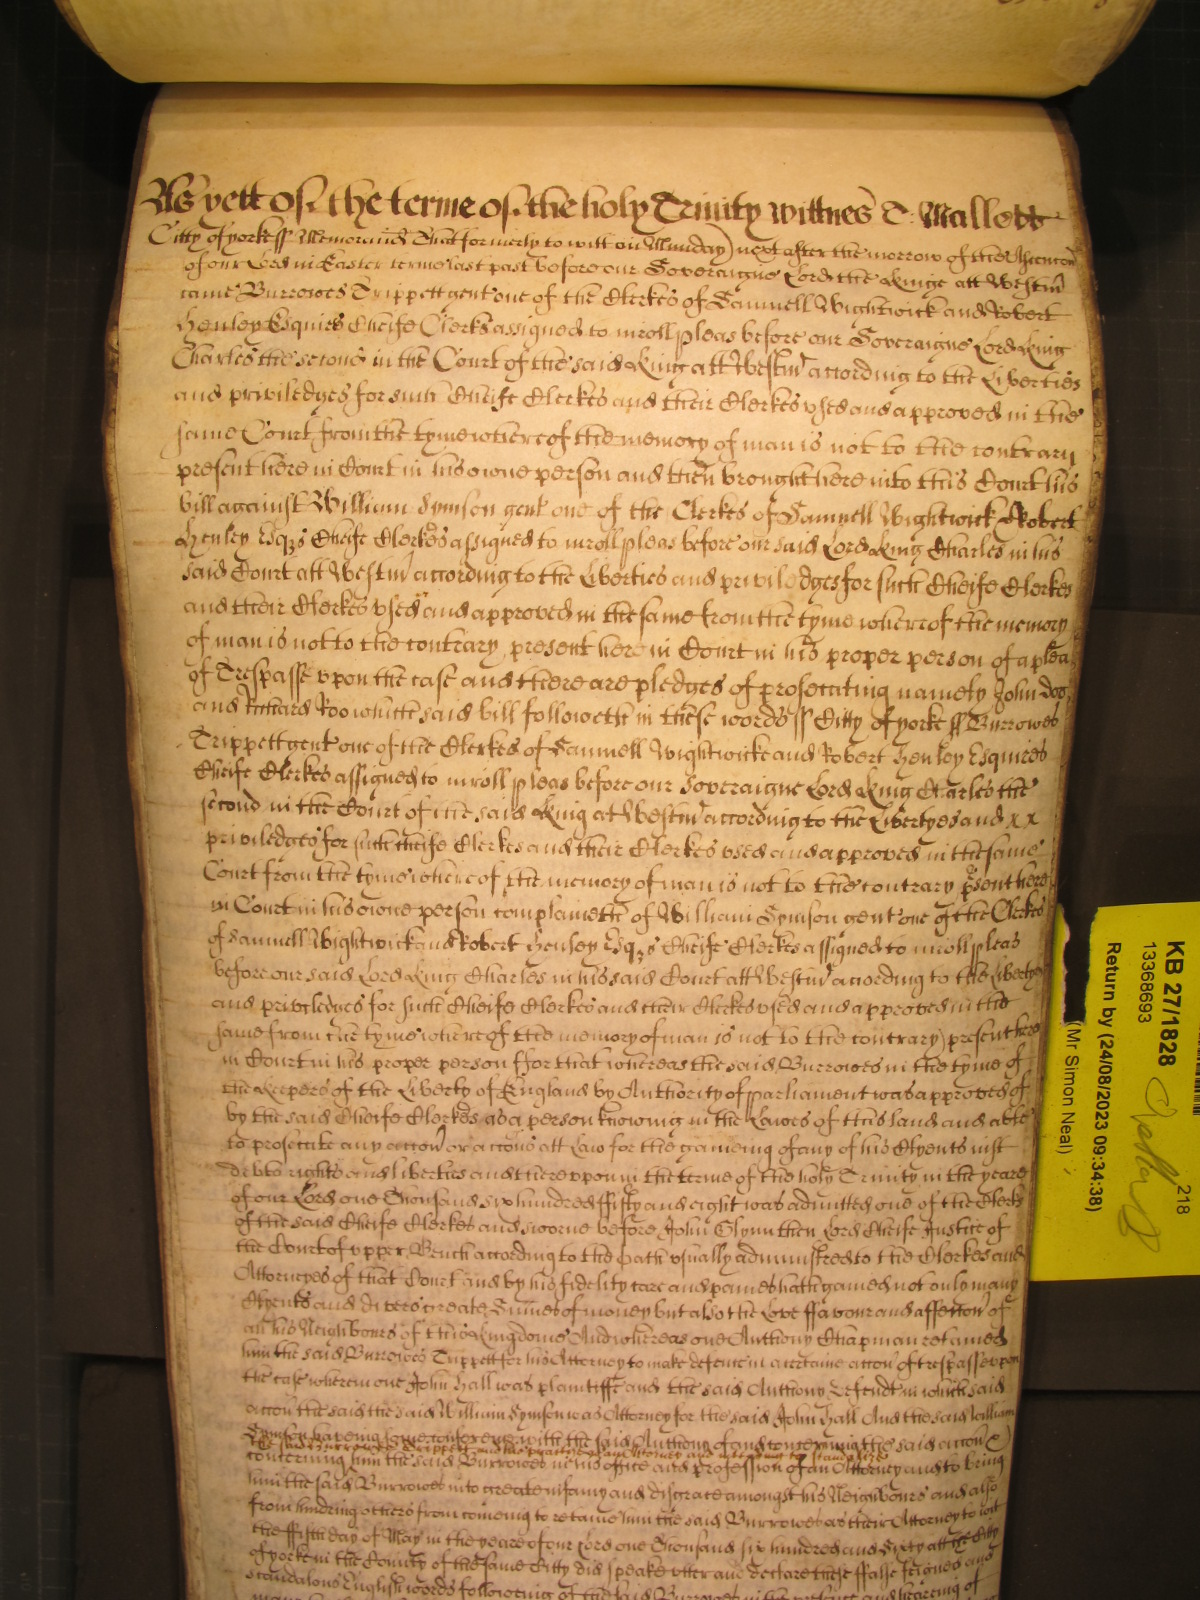 As yett of the terme of the holy Trinity wittnes T: Mallett
Citty of yorke ss Memorand That formerly to witt on Munday next after the morrow of the Ascencon
of our Lord in Easter terme last past before our Soveraigne Lord the Kinge att Westm
came Burrowes Trippett gent one of the Clerkes of Samuell Wightwick and Robert
Henley Esquires Cheife Clerks assigned to inroll pleas before our Soveraigne Lord King
Charles the second in the Court of the said King att Westm according to the Liberties
and priviledges for such Cheife Clerkes and their Clerkes vsed and approved in the
same Court from the tyme whereof the memory of man is not to the contrary
present here in Court in his owne person and then brought here into this Court his
bill against William Symson gent one of the Clerkes of Samuell Wightwick & Robert
Henley Esqrs Cheife Clerkes assigned to inroll pleas before our said Lord King Charles in his
said Court att Westm according to the Liberties and priviledges for such Cheife Clerkes
and their Clerkes vsed and approved in the same from the tyme whereof the memory
of man is not to the contrary present here in Court in his proper person of a plea
of Trespasse vpon the case and there are pledges of prosecuting namely John Doo
and Richard Roo which said bill followeth in these words ss Citty of yorke ss Burrowes
Trippett gent one of the Clerkes of Samuell Wightwicke and Robert Henley Esquires
Cheife Clerkes assigned to inroll pleas before our Soveraigne Lord King Charles the
second in the Court of the said King at Westm according to the Libertyes and x x
priviledges for such cheife Clerkes and their Clerkes vsed and approved in the same
Court from the tyme whereof the memory of man is not to the contrary psent here
in Court in his owne person complaineth of William Symson gent one of the Clerkes
of Samuell Wightwick and Robert Henley Esqrs Cheife Clerkes assigned to inroll pleas
before our said Lord King Charles in his said Court att Westm according to the Libertyes
and priviledges for such Cheife Clerkes and their Clerkes vsed and approved in the
same from the tyme whereof the memory of man is not to the contrary present here
in Court in his proper person ffor that whereas the said Burrowes in the tyme of
the Keepers of the Liberty of England by Authority of parliament was approved of
by the said Cheife Clerkes as a person knowing in the Lawes of this land and able
to prosecute any accon or accons att Law for the gaineing of any of his Clyents iust
debts rights and liberties and therevpon in the terme of the holy Trinity in the yeare
of our Lord one Thousand six hundred ffifty and eight was admitted one of the Clerks
of the said Cheife Clerkes and sworne before John Glynn then Lord Cheife Justice of
the Court of vpper Bench according to the oath vsually administred to the Clerkes and
Attorneyes of that Court and by his fidelity care and paines hath gained not only many
Clyents and divers greate Summes of money but also the Love ffavour and affection of
all his Neighbours of this Kingdome And whereas one Anthony Chapman retained
him the said Burrowes Trippett for his Attorney to make defence in a certaine accon of trespasse vpon
the case wherein one John Hall was plaintiffe and the said Anthony Defendt in which said
accon the said the said William Symson was Attorney for the said John Hall And the said William
Symson haveing some conference with the said Anthony of and concerning the said accon
the said Burrowes Trippett
concerning him the said Burrowes in his office and profession of an Attorney and to bring
him the said Burrowes into greate infamy and disgrace amongst his Neighbours and also
from hindring others from comeing to retaine him the said Burrowes as their Attorney to witt
the ffifth day of May in the yeare of our Lord one Thousand six hundred and Sixty att the Citty
of yorke in the County of the same Citty did speake vtter and declare these ffalse feigned and
scandalous English words following of the said Burrowes in the presence and hearing of
KB 27/1828
13368693
218
Return by (24/08/2023 09:34:38)
(Mr Simon Neal)